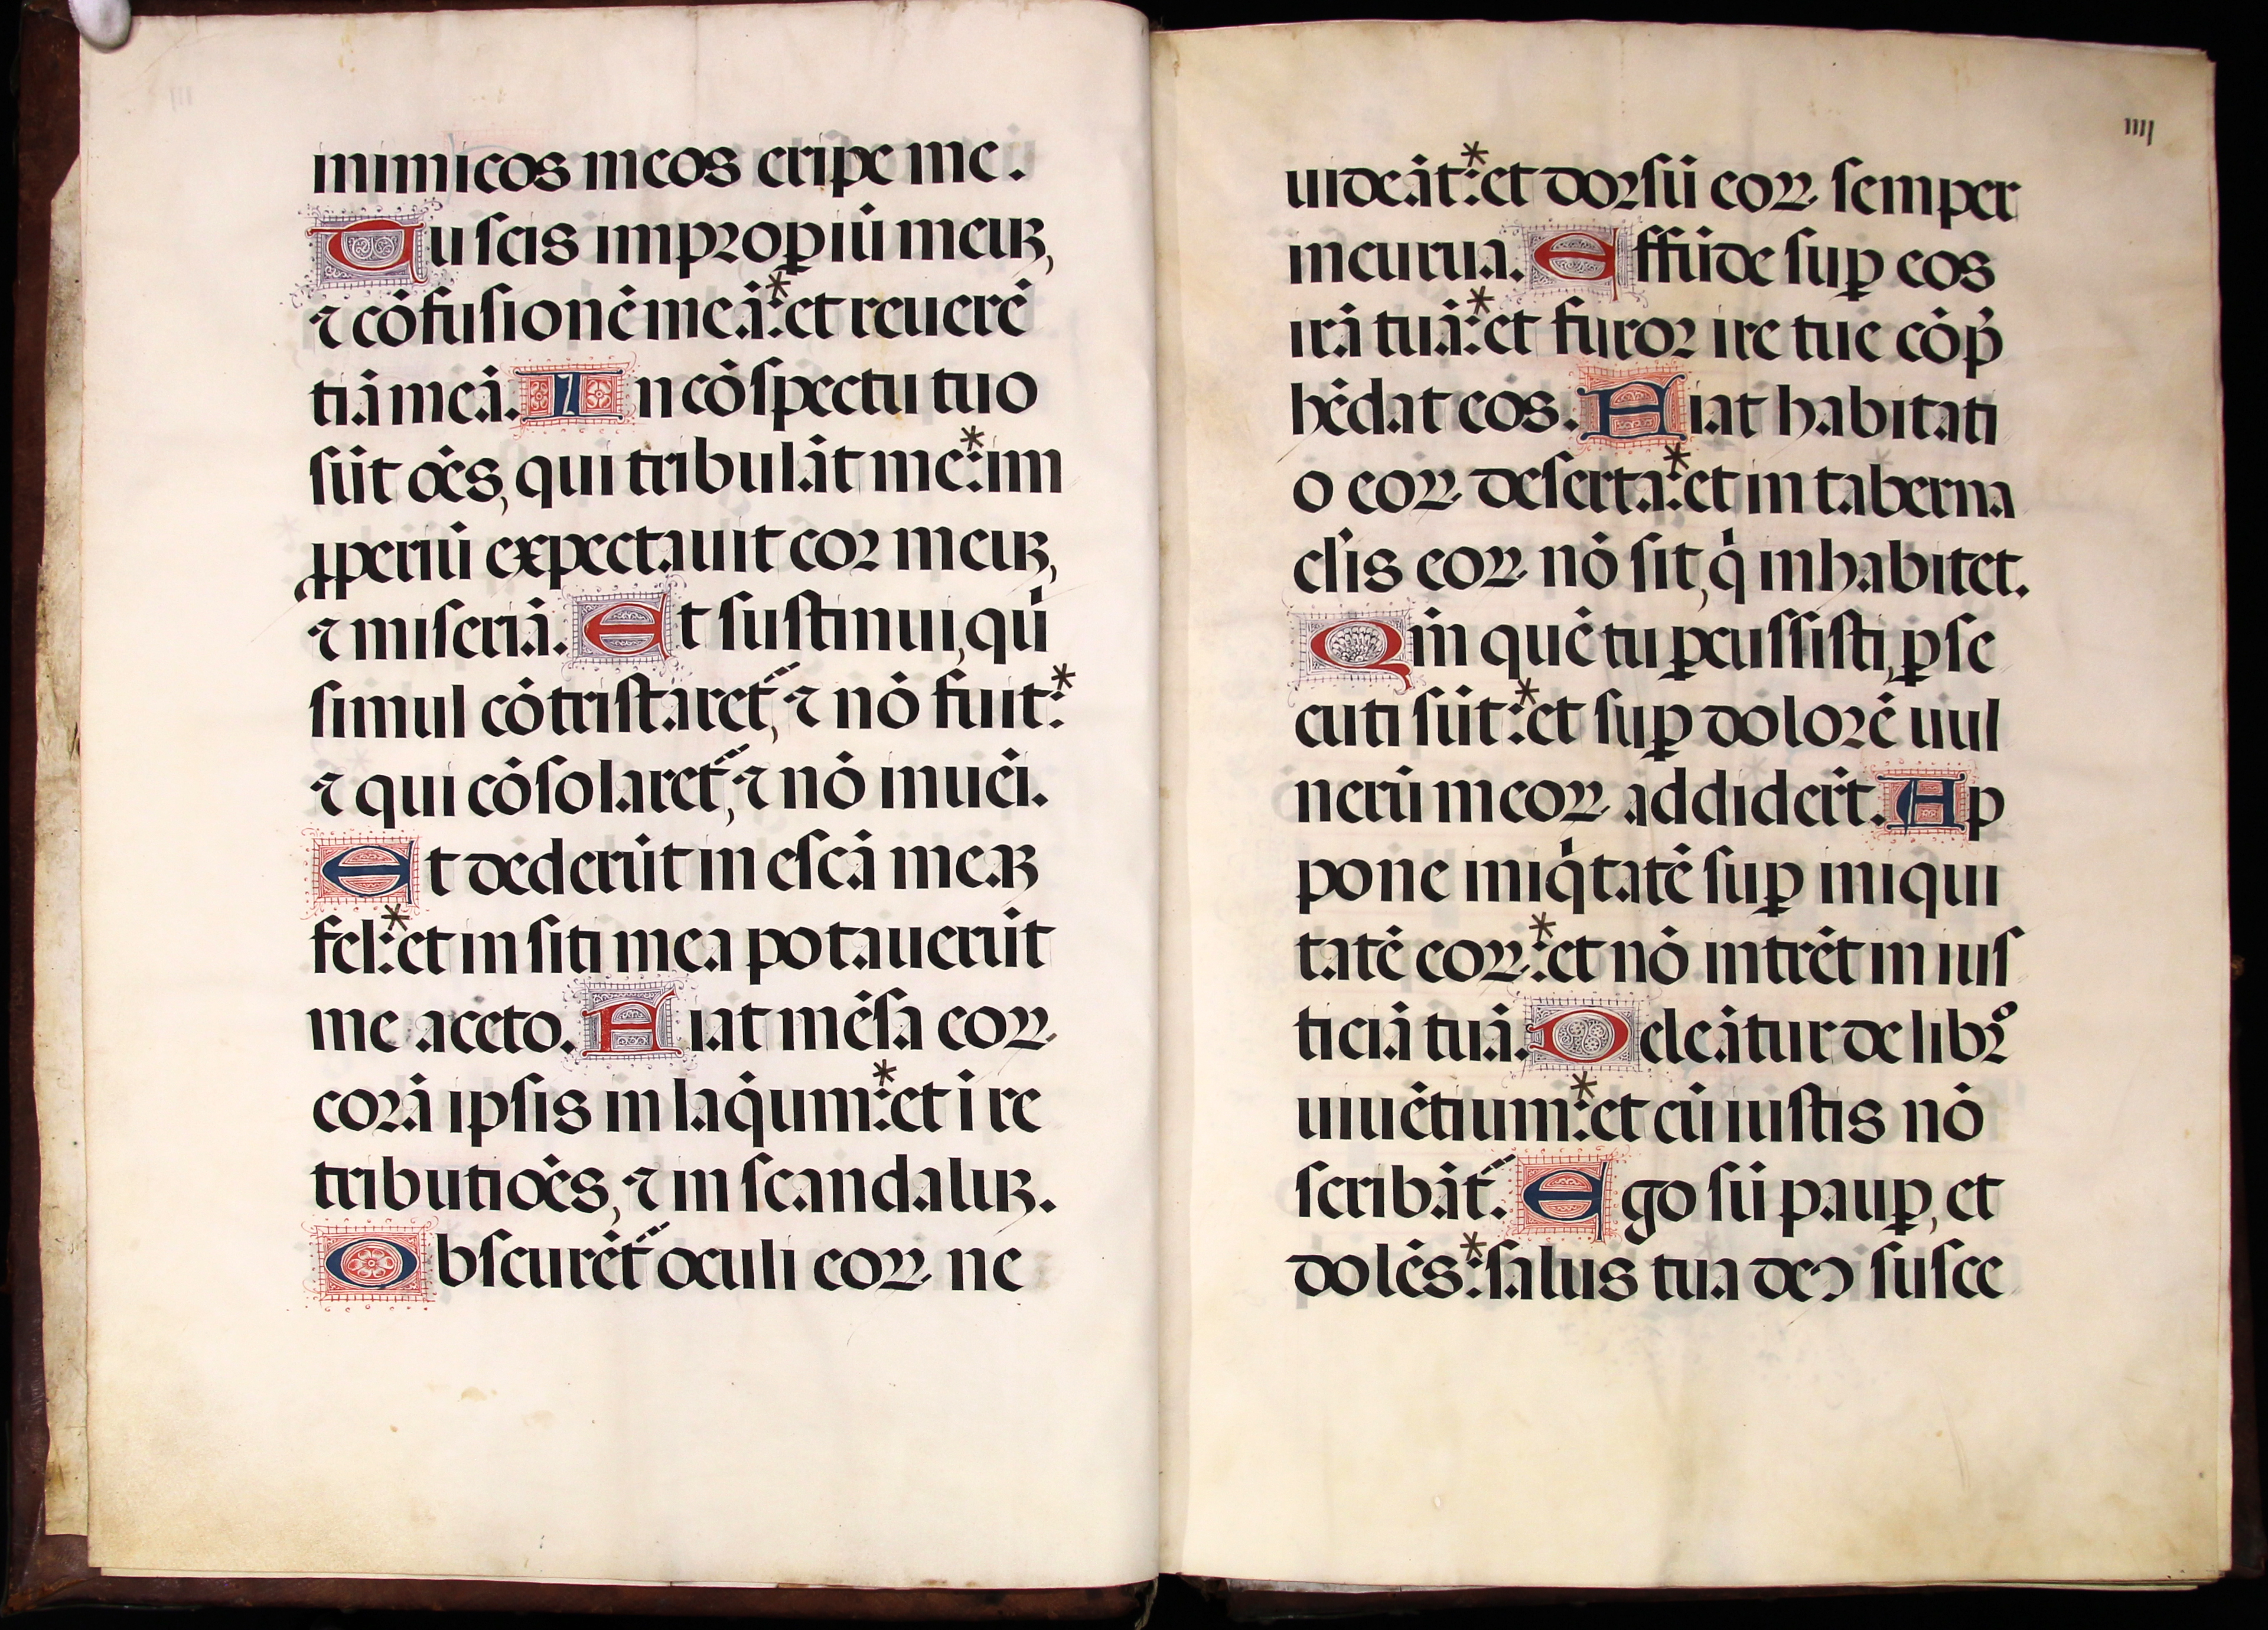 inimicos meos eripe me.
Tu scis improꝑiū meuꝫ,
⁊ cōfusionē meā:* et reuerē
tiā meā. In cōspectu tuo
sūt oēs, qui tribulāt me:* im
ꝓperiū expectauit cor meuꝫ,
⁊ miseriā. Et sustinui, qui
simul cōtristaret᷑, ⁊ nō fuit:*
⁊ qui cōsolaret᷑, ⁊ nō inuēi.
Et dederūt in escā meaꝫ
fel:* et in siti mea potauerūt
me aceto. Fiat mēsa eoꝝ
corā ipsis in laq̇um:* et ī re
tributiōes, ⁊ in scandaluꝫ.
Obscurēt᷑ oculi eoꝝ ne
IIII
uideāt:* et dorsū eoꝝ semper
incurua. Effūde suꝑ eos
irā tuā:* et furor ire tue cōp̄
hēdat eos. Fiat habitati
o eoꝝ deserta:* et in taberna
cl̄is eoꝝ nō sit, q̇ inhabitet.
Qm̄ quē tu ꝑcussisti, ꝑse
cuti sūt:* et suꝑ dolorē uul
nerū meoꝝ addider̄t. Ap
pone iniq̇tatē suꝑ iniqui
tatē eoꝝ:* et nō intrēt in ius
ticiā tuā. Deleātur de librͦ
uiuētium:* et cū iustis nō
scribāt᷑. Ego sū pauꝑ, et
dolēs:* salus tua deꝰ susce